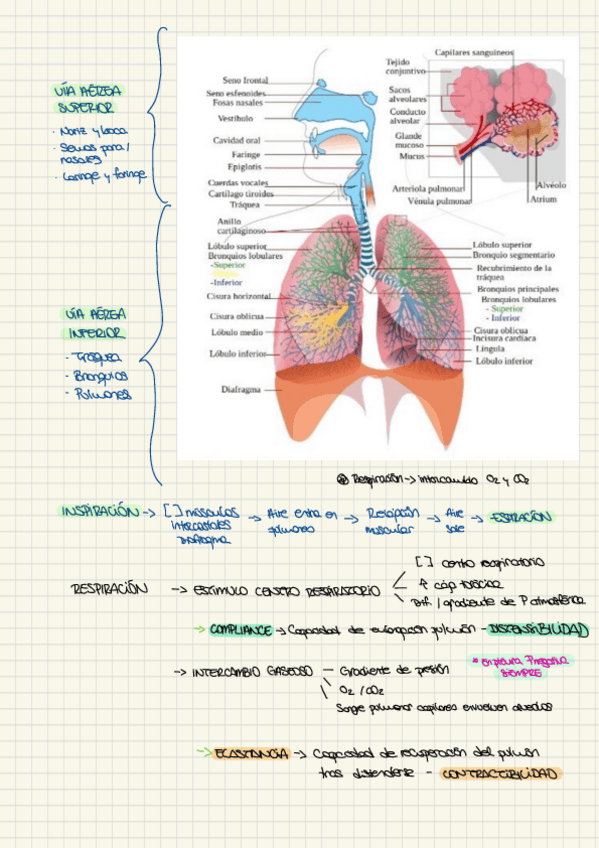 VÍA AÉREA
SUPERIOR
· Nariz y boca
· Senos para/
nasales
· Laringe y faringe
VÍA AÉREA
INFERIOR
· Tráquea
· Bronquios
· Pulmones
Seno frontal
Seno esfenoides
Fosas nasales
Vestíbulo
Cavidad oral
Faringe
Epiglotis
Cuerdas vocales
Cartílago tiroides
Tráquea
Anillo
cartilaginoso
Lóbulo superior
Bronquios lobulares
-Superior
-Inferior
Cisura horizontal
Cisura oblicua
Lóbulo medio
Lóbulo inferior
Diafragma
Capilares sanguíneos
Tejido
conjuntivo
Sacos
alveolares
Conducto
alveolar
Glande
mucoso
Mucus
Arteriola pulmonar
Vénula pulmonar
Alvéolo
Atrium
Lóbulo superior
Bronquio segmentario
Recubrimiento de la
tráquea
Bronquios principales
Bronquios lobulares
- Superior
- Inferior
Cisura oblicua
Incisura cardíaca
Língula
Lóbulo inferior
Respiración → intercambio O2 y CO2
INSPIRACIÓN → [ ] músculos intercostales diafragma → Aire entra en pulmones → Relajación muscular → Aire sale → ESPIRACIÓN
[ ] centro respiratorio
RESPIRACIÓN → ESTÍMULO CENTRO RESPIRATORIO
caja torácica
Dif. / gradiente de P atmosférica
→ COMPLIANCE → Capacidad de elongación pulmón - DISTENSIBILIDAD
→ INTERCAMBIO GASEOSO - Gradiente de presión
* En pleura P negativa
SIEMPRE
\ O2 / CO2
Sangre pulmonar capilares envuelven alveolos
→ ELASTANCIA → Capacidad de recuperación del pulmón
tras distenderse - CONTRACTIBILIDAD